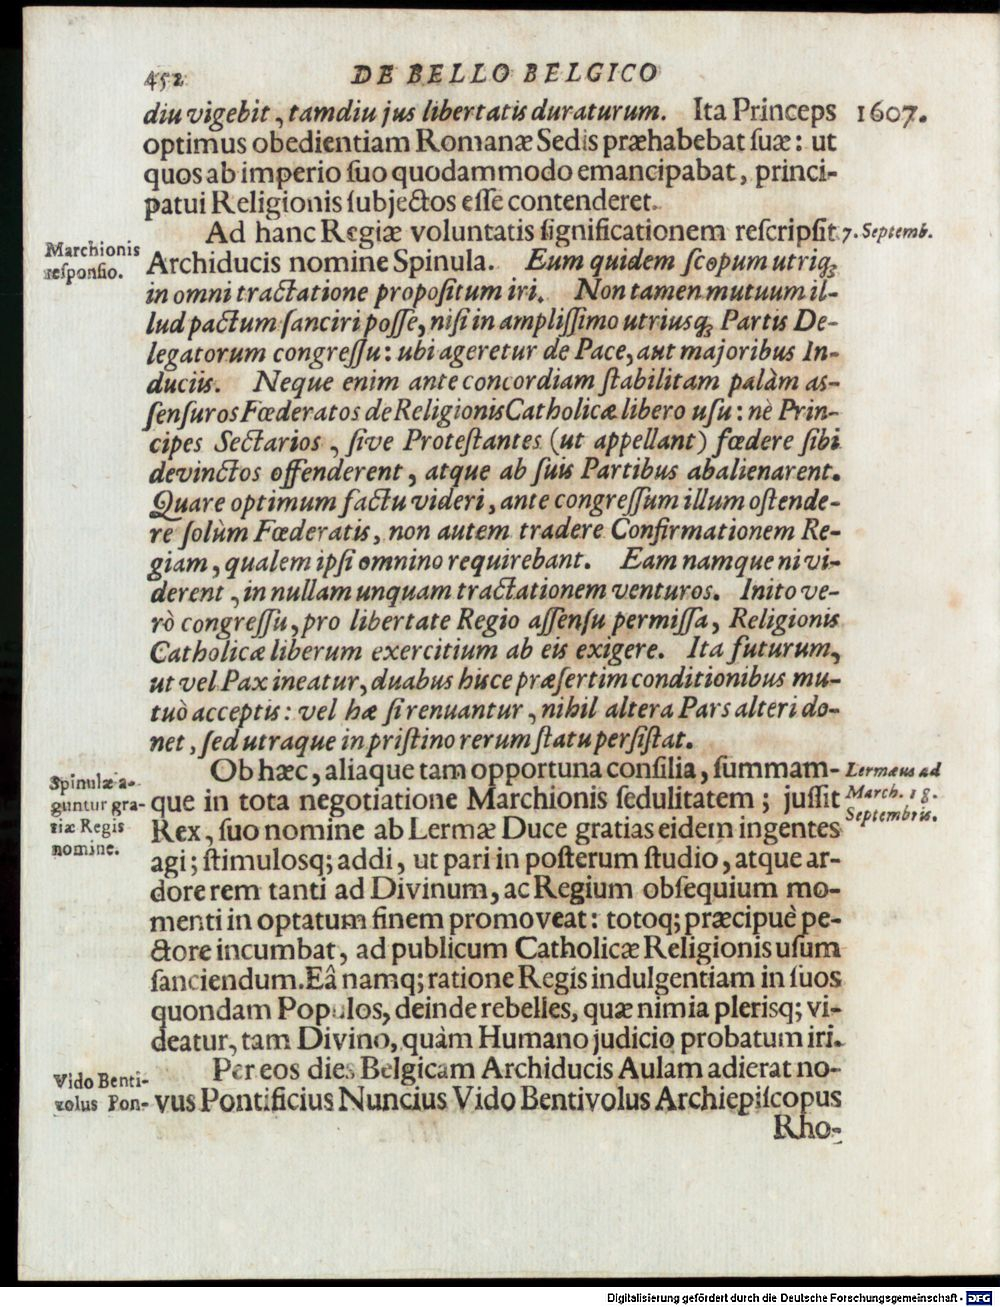 452 DE BELLO BELGICO
diu vigebit, tamdiu jus libertatis duraturum. Ita Princeps
1607.
optimus obedientiam Romanæ Sedis præhabebat ſuæ: ut
quos ab imperio ſuo quodammodo emancipabat, princi-
patui Religionis ſubjectos eſſe contenderet.
Ad hanc Regiæ voluntatis ſignificationem reſcripſit
7. Septemb.
Marchionis
reſponſio.
Archiducis nomine Spinula. Eum quidem ſcopum utriq;
in omni tractatione propoſitum iri. Non tamen mutuum il-
lud pactum ſanciri poſſe, niſi in ampliſſimo utriusq; Partis De-
legatorum congreſſu: ubi ageretur de Pace, aut majoribus In-
duciis. Neque enim ante concordiam ſtabilitam palàm as-
ſenſuros Fœderatos de Religionis Catholicæ libero uſu: nè Prin-
cipes Sectarios, ſive Proteſtantes (ut appellant) fœdere ſibi
devinctos offenderent, atque ab ſuis Partibus abalienarent.
Quare optimum factu videri, ante congreſſum illum oſtende-
re ſolùm Fœderatis, non autem tradere Confirmationem Re-
giam, qualem ipſi omnino requirebant. Eam namque ni vi-
derent, in nullam unquam tractationem venturos. Inito ve-
rò congreſſu, pro libertate Regio aſſenſu permiſſa, Religionis
Catholicæ liberum exercitium ab eis exigere. Ita futurum,
ut vel Pax ineatur, duabus hisce præſertim conditionibus mu-
tuò acceptis: vel hæ ſi renuantur, nihil altera Pars alteri do-
net, ſed utraque in priſtino rerum ſtatu perſiſtat.
Ob hæc, aliaque tam opportuna conſilia, ſummam-
Lermæus ad
March. 18.
Septembris.
Spinulæ a-
guntur gra-
tiæ Regis
nomine.
que in tota negotiatione Marchionis ſedulitatem; juſſit
Rex, ſuo nomine ab Lermæ Duce gratias eidem ingentes
agi; ſtimulosq; addi, ut pari in poſterum ſtudio, atque ar-
dore rem tanti ad Divinum, ac Regium obſequium mo-
menti in optatum finem promoveat: totoq; præcipuè pe-
ctore incumbat, ad publicum Catholicæ Religionis uſum
ſanciendum. Eâ namq; ratione Regis indulgentiam in ſuos
quondam Populos, deinde rebelles, quæ nimia plerisq; vi-
deatur, tam Divino, quàm Humano judicio probatum iri.
Per eos dies Belgicam Archiducis Aulam adierat no-
Vido Benti-
volus Pon-
vus Pontificius Nuncius Vido Bentivolus Archiepiſcopus
Rho-
Digitalisierung gefördert durch die Deutsche Forschungsgemeinschaft - DFG